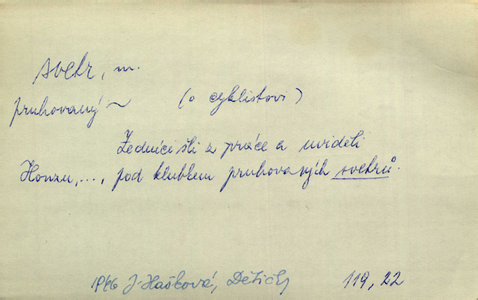 svetr, m.
pruhovaný ~ (o cyklistovi)
Zedníci šli z práce a uviděli
Honzu, ..., pod klubkem pruhovaných svetrů.
1966 J. Hašková, Dětický 119, 22